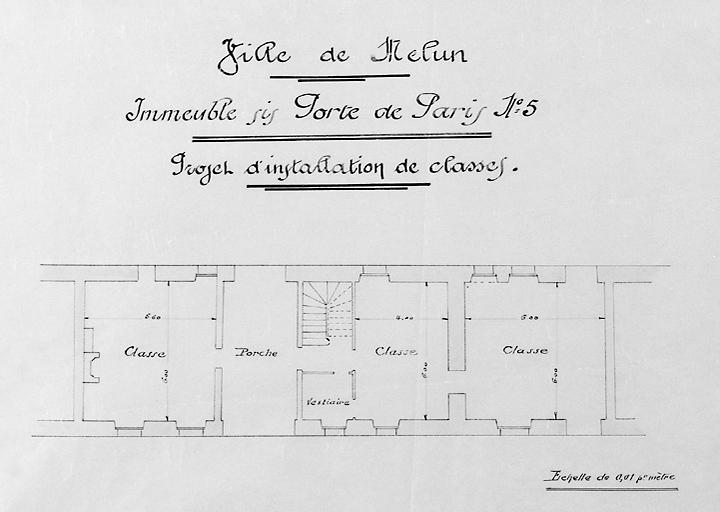 Ville de Melun
Immeuble sis Porte de Paris N°5
Projet d'installation de classes.
6.00
Classe
Porche
4.00
Classe
6.00
Classe
6.00
6.00
Vestiaire
Echelle de 0,01 pr mètre